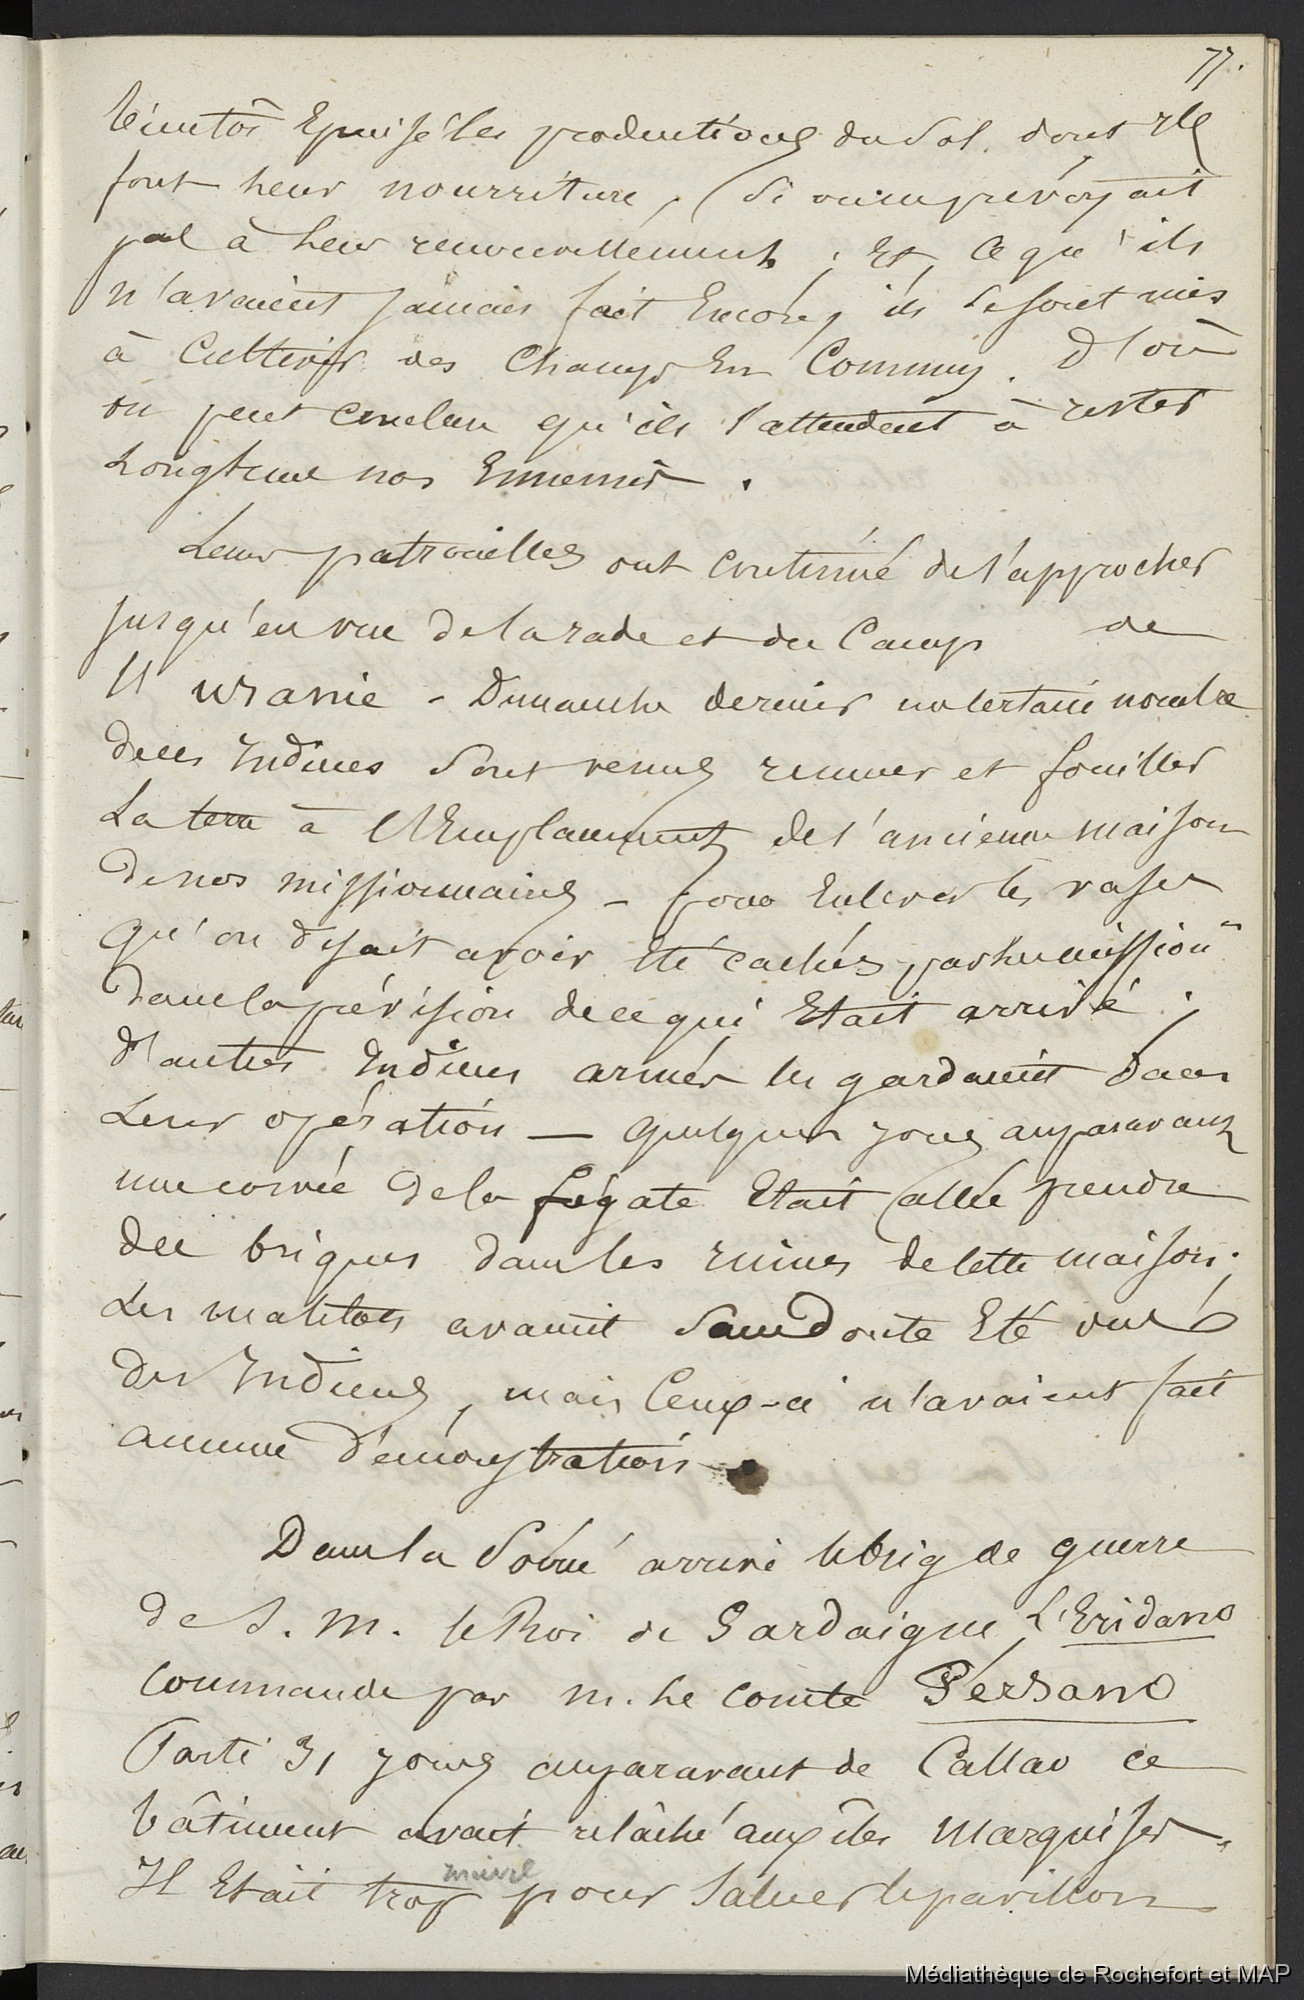 77.
bientôt Épuisé les productions du Sol. dont ils
font leur nourriture, Si on ne prévoyait
pas à leur renouvellement ; Et, Ce qu'ils
n'avaient jamais fait Encore, ils se sont mis
à Cultiver des Champs En Commun. D'où
on peut conclure qu'ils s'attendent à rester
Longtems nos Ennemis.
Leurs patrouilles ont continué de s'approcher
jusqu'en vue de la rade et du Camp de
l'Uranie - Dimanche dernier un certain nombre
de ces Indiens Sont venus remuer et fouiller
La terre à l'Emplacement de l'ancienne maison
de nos missionnaires - pour Enlever les vases
qu'on disait avoir été cachés par les mission.res
dans la prévision de ce qui Etait arrivé ;
d'autres Indiens armés les gardaient dans
Leur opération — quelques jours auparavant
une corvée de la frégate Etait allée prendre
des briques dans les ruines de cette maison ;
Les matelots avaient Sans doute Eté vus
des Indiens, mais Ceux-ci n'avaient fait
aucune démonstration.
Dans la Soirée arrive le brig de guerre
de S. M. le Roi de Sardaigne L'Eridano
commandé par M. Le Comte Persano
Parti 31 jours auparavant de Callao ce
bâtiment avait relâché aux îles Marquises.
Il Etait trop pour Saluer le pavillon
Médiathèque de Rochefort et MAP